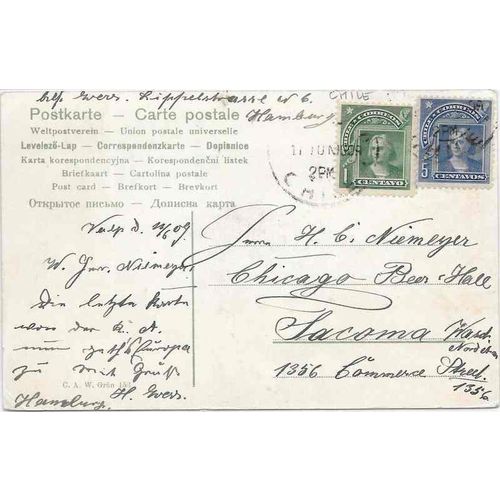 Lippelstrasse No 6.
Hamburg
Postkarte — Carte postale
Weltpostverein — Union postale universelle
Levelező-Lap — Correspondenzkarte — Dopisnice
Karta korespondencyjna — Korespondenční lístek
Briefkaart — Cartolina postale
Post card — Brefkort — Brevkort
Открытое письмо — Дописна карта
CHILE
CORREOS
1 CENTAVO
CORREOS
5 CENTAVOS
17 JUN 1909
2PM
CHILE
Herrn H. C. Niemeyer
Chicago Beer-Hall
Tacoma Wash.
1356 Commerce Street
1356
Valp d. 17/6 09
W. Herr Niemeyer
Die letzte Karte
von der K. A.
nun geht's Europa
zu mit Gruß
H. Evers.
Hamburg.
C. A. W. Grün